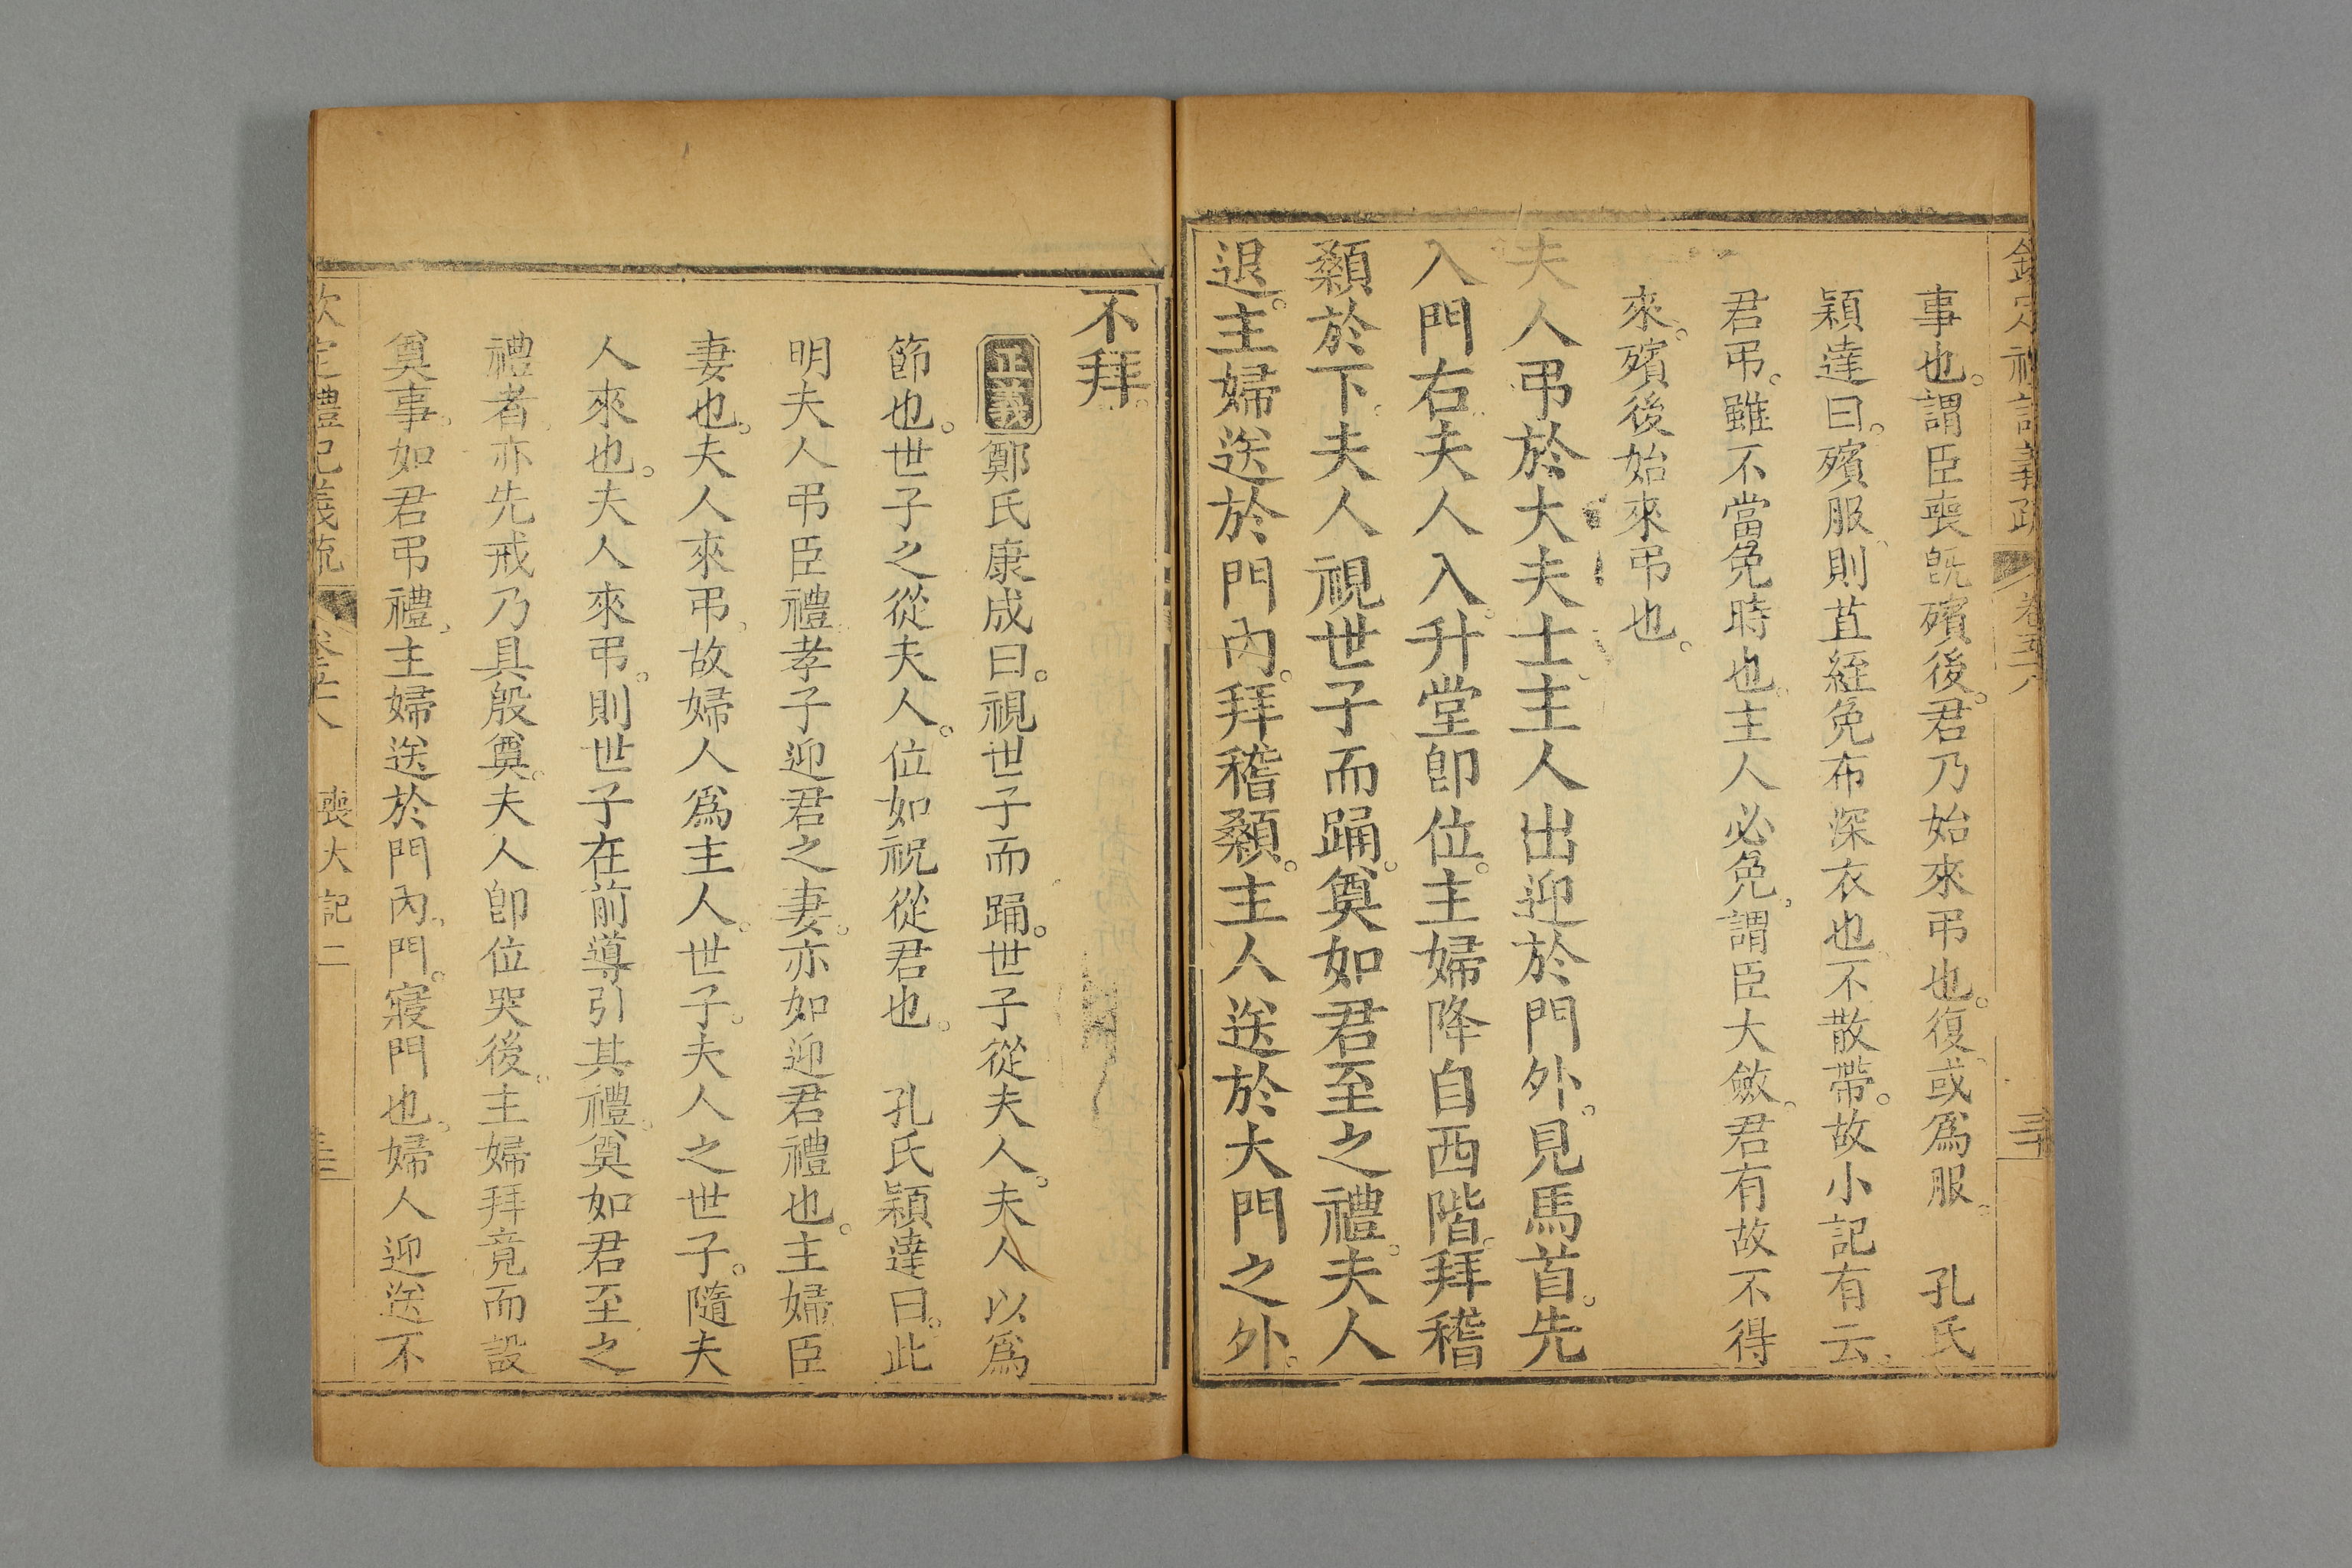 欽定禮記義疏 卷五十八
事也。謂臣喪旣殯後。君乃始來弔也。復、或爲服。 孔氏
穎達曰。殯服、則苴絰免布深衣也、不散帶。故小記有云。
君弔。雖不當免時也。主人必免。謂臣大斂。君有故不得
來。殯後始來弔也。
夫人弔於大夫士。主人出迎於門外。見馬首。先
入門右。夫人入。升堂卽位。主婦降自西階。拜稽
顙於下。夫人視世子而踊。奠如君至之禮。夫人
退。主婦送於門內。拜稽顙。主人送於大門之外。
不拜。
正義 鄭氏康成曰。視世子而踊。世子從夫人。夫人以爲
節也。世子之從夫人。位如祝從君也。 孔氏穎達曰。此
明夫人弔臣禮孝子迎君之妻。亦如迎君禮也。主婦臣
妻也。夫人來弔、故婦人爲主人。世子。夫人之世子。隨夫
人來也。夫人來弔。則世子在前導引其禮。奠如君至之
禮者、亦先戒乃具殷奠。夫人卽位哭後。主婦拜竟而設
奠事。如君弔禮、主婦送於門內、門。寢門也。婦人迎送不
欽定禮記義疏 卷五十八 喪大記二